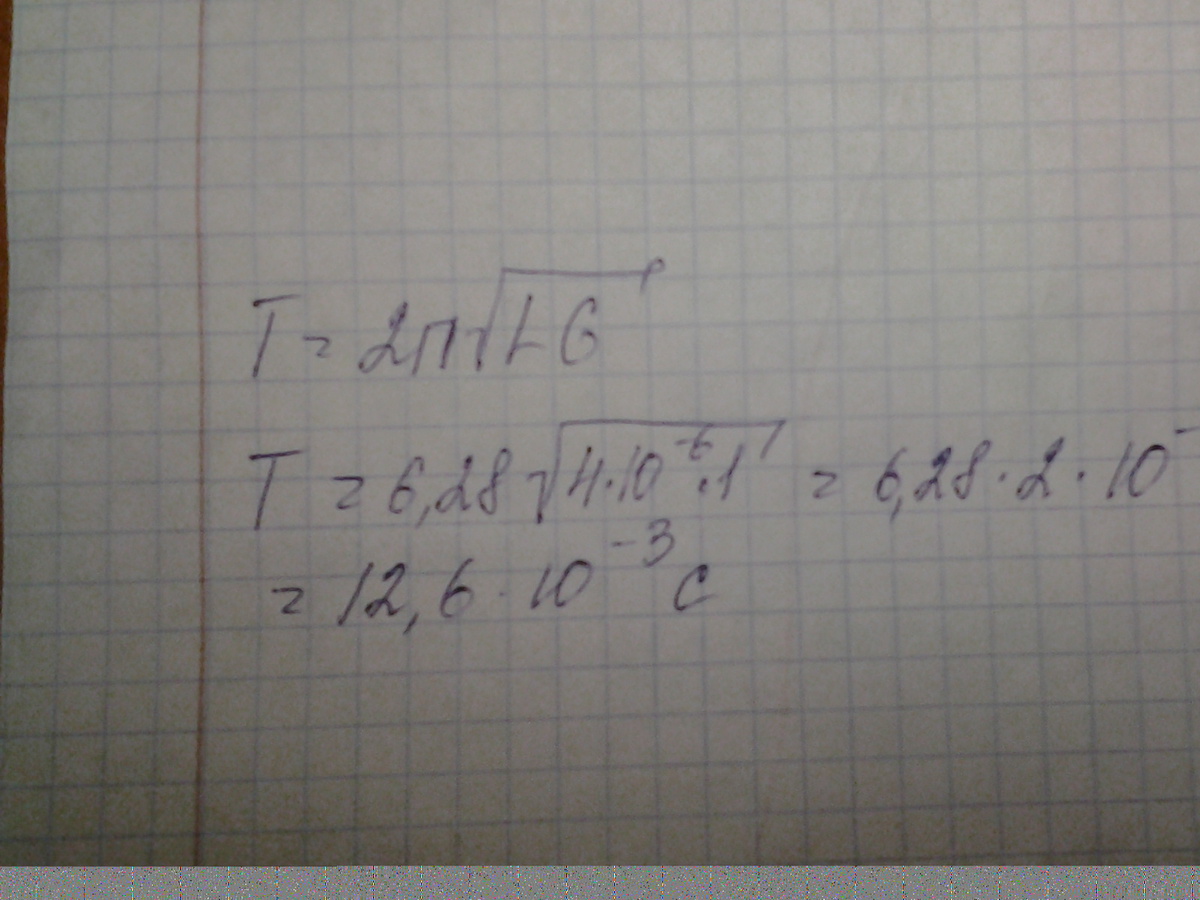 T = 2π√LC
T = 6,28 √4·10⁻⁶·1 = 6,28·2·10⁻
= 12,6·10⁻³ с